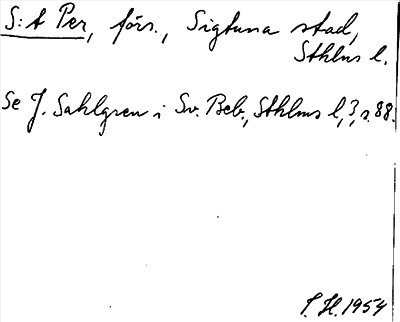 S:t Per, förs., Sigtuna stad,
Sthlms l.
Se J. Sahlgren i Sv. Beb., Sthlms l, 3, s. 88.
S. H. 1954